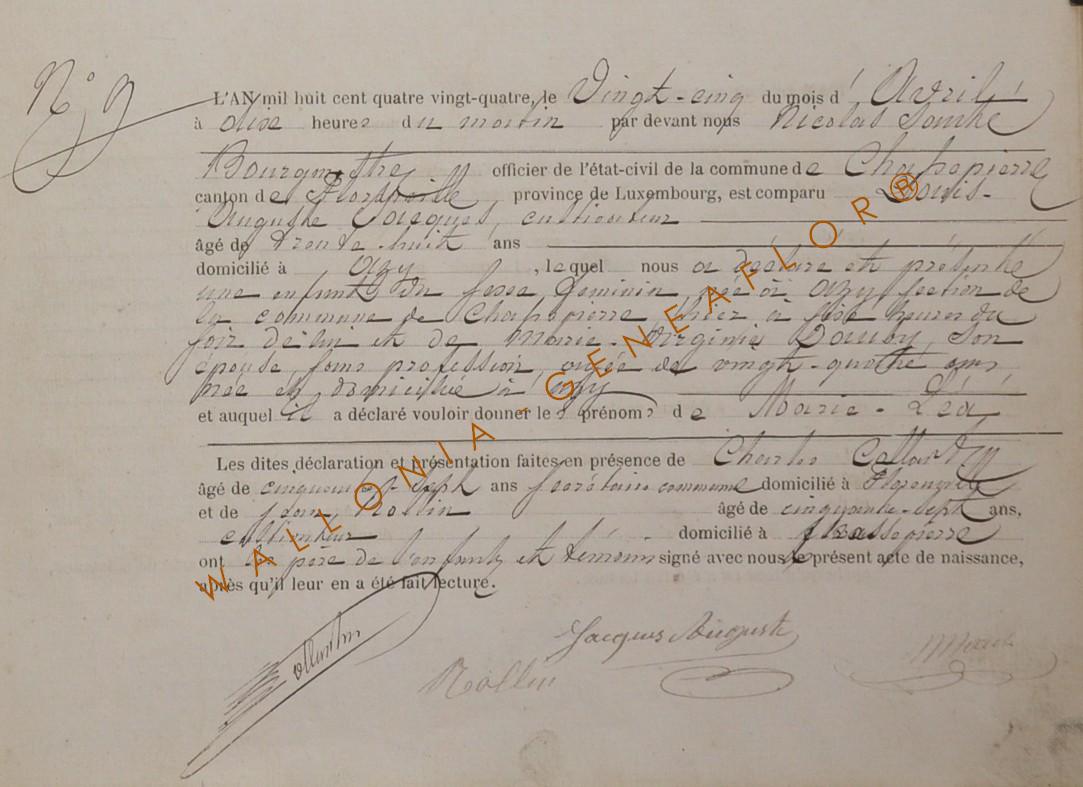 N° 9
L'AN mil huit cent quatre vingt-quatre, le Vingt-cinq du mois d' Avril
à dix heures du matin par devant nous Nicolas
Bourgmestre officier de l'état-civil de la commune de Chassepierre
canton de Florenville, province de Luxembourg, est comparu Louis-
Auguste Jacques, cultivateur
âgé de trente-huit ans
domicilié à Azy, lequel nous a déclaré et présenté
une enfant du sexe féminin, née à Azy section de
la commune de Chassepierre hier à heures du
soir de lui et de Marie-Virginie son
épouse, sans profession, âgée de vingt-quatre ans
née et domiciliée à Azy
et auquel il a déclaré vouloir donner les prénoms de Marie-Léa
Les dites déclaration et présentation faites en présence de Charles
âgé de cinquante-sept ans secrétaire communal domicilié à Florenville
et de Jean Rollin âgé de cinquante-sept ans,
cultivateur domicilié à Chassepierre
ont le père de l'enfant et témoins signé avec nous le présent acte de naissance,
après qu'il leur en a été fait lecture.
Jacques Auguste
Rollin
WALLONIA - GENEAFLOR®